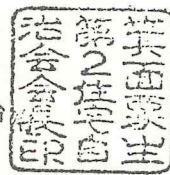 箕面粟生
第2住宅自
治会会長印